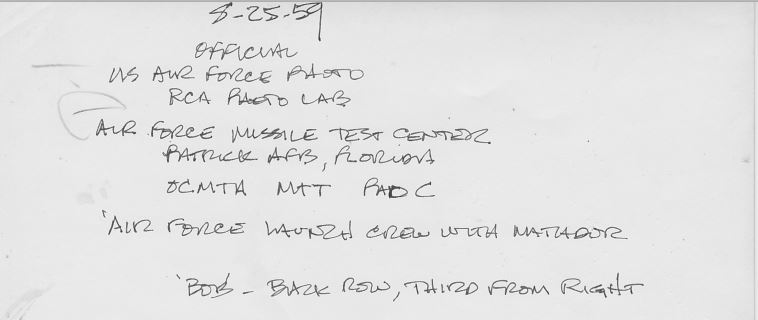 8-25-59
OFFICIAL
US AIR FORCE PHOTO
RCA PHOTO LAB
AIR FORCE MISSILE TEST CENTER
PATRICK AFB, FLORIDA
OCMTA MTT PAD C
'AIR FORCE LAUNCH CREW WITH MATADOR
'BOB - BACK ROW, THIRD FROM RIGHT